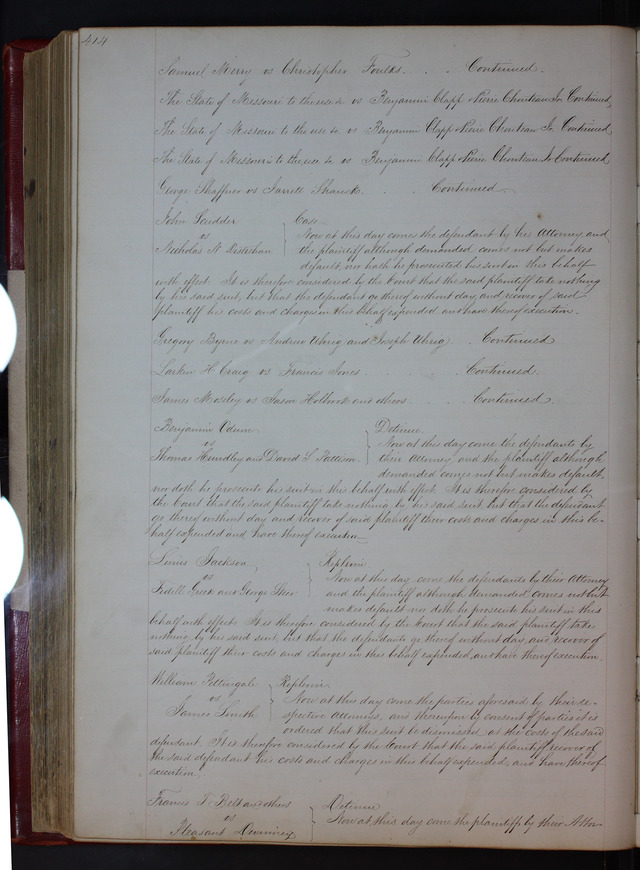 414
Samuel Merry vs Christopher Foulks . . . Continued.
The State of Missouri to the use &c vs Benjamin Clapp & Pierre Chouteau Jr. Continued
The State of Missouri to the use &c vs Benjamin Clapp & Pierre Chouteau Jr. Continued
The State of Missouri to the use &c vs Benjamin Clapp & Pierre Chouteau Jr Continued
George Shaffner vs Jarrett . . . Continued
John Scudder } Case.
vs Now at this day comes the defendant by his Attorney, and
Nicholas N the plaintiff although demanded comes not but makes
default, nor hath he prosecuted his suit in this behalf
with effect. It is therefore considered by the Court that the said plaintiff take nothing
by his said suit, but that the defendant go thereof without day, and recover of said
plaintiff his costs and charges in this behalf expended, and have thereof execution.
Gregory Byrne vs Andrew Uhrig and Joseph Uhrig . . Continued
Larkin H. Craig vs Francis Jones . . . . Continued.
James Moseley vs Jason Holbrook and others . . . Continued.
Benjamin Odum } Detinue.
vs Now at this day come the defendants by
Thomas Hundley and David L Pattison. their Attorney, and the plaintiff although
demanded comes not but makes default,
nor doth he prosecute his suit in this behalf with effect. It is therefore considered by
the Court that the said plaintiff take nothing by his said suit, but that the defendants
go thereof without day and recover of said plaintiff their costs and charges in this be-
half expended and have thereof execution.
Jackson, } Replevin.
vs Now at this day come the defendants by their Attorney
and George and the plaintiff although demanded comes not but
makes default nor doth he prosecute his suit in this
behalf with effect. It is therefore considered by the Court that the said plaintiff take
nothing by his said suit, but that the defendants go thereof without day, and recover of
said plaintiff their costs and charges in this behalf expended, and have thereof execution.
William Pettingale } Replevin.
vs Now at this day come the parties aforesaid by their re-
James Smith spective Attornies, and thereupon by consent of parties it is
ordered that this suit be dismissed at the costs of the said
defendant. It is therefore considered by the Court that the said plaintiff recover of
the said defendant his costs and charges in this behalf expended, and have thereof
execution.
Francis T. Belt and others } Detinue
vs Now at this day come the plaintiffs by their Attor-
Pleasant